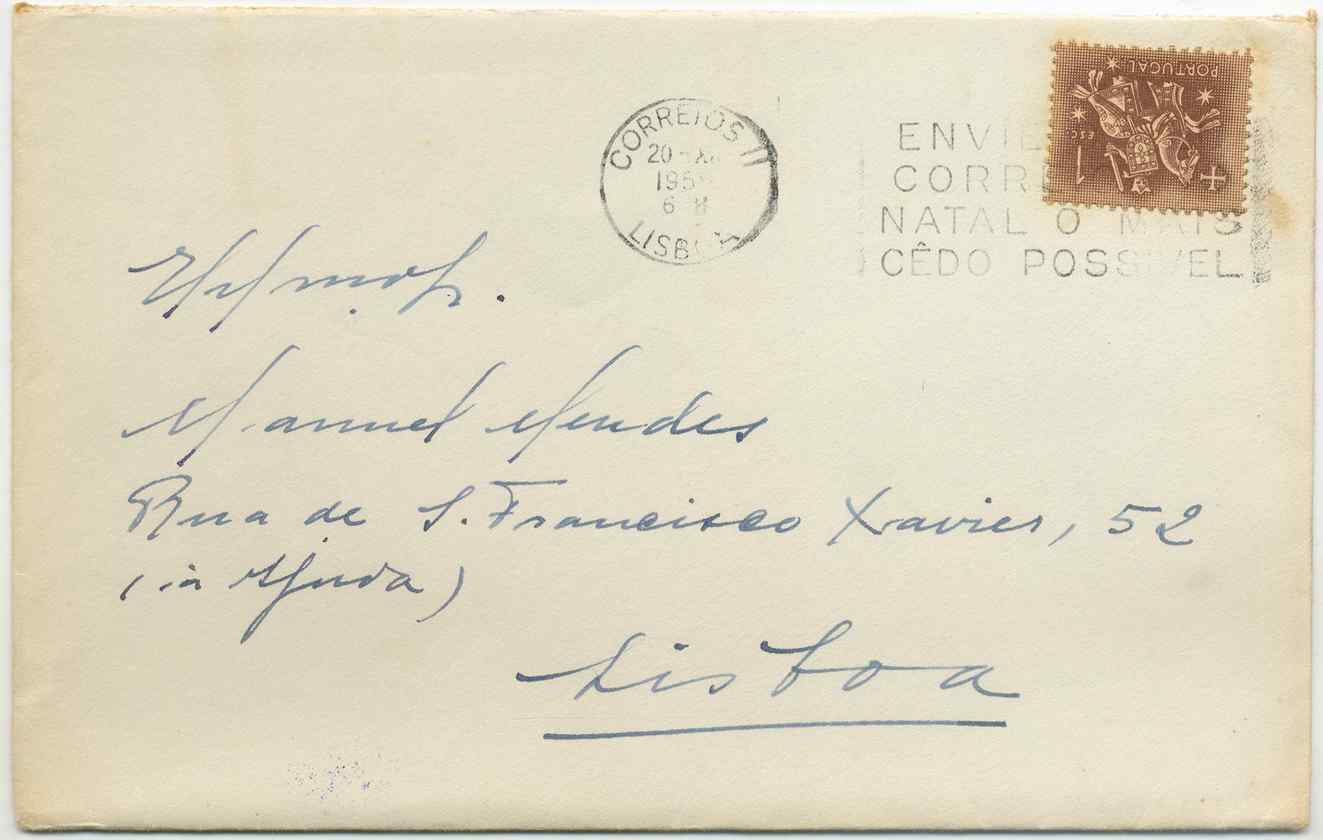 CORREIOS
20
LISBOA
ENVIE
CORRE
NATAL O MAIS
CÊDO POSSIVEL
PORTUGAL
1 ESC
Manuel Mendes
Rua de S. Francisco Xavier, 52
(à Ajuda)
Lisboa